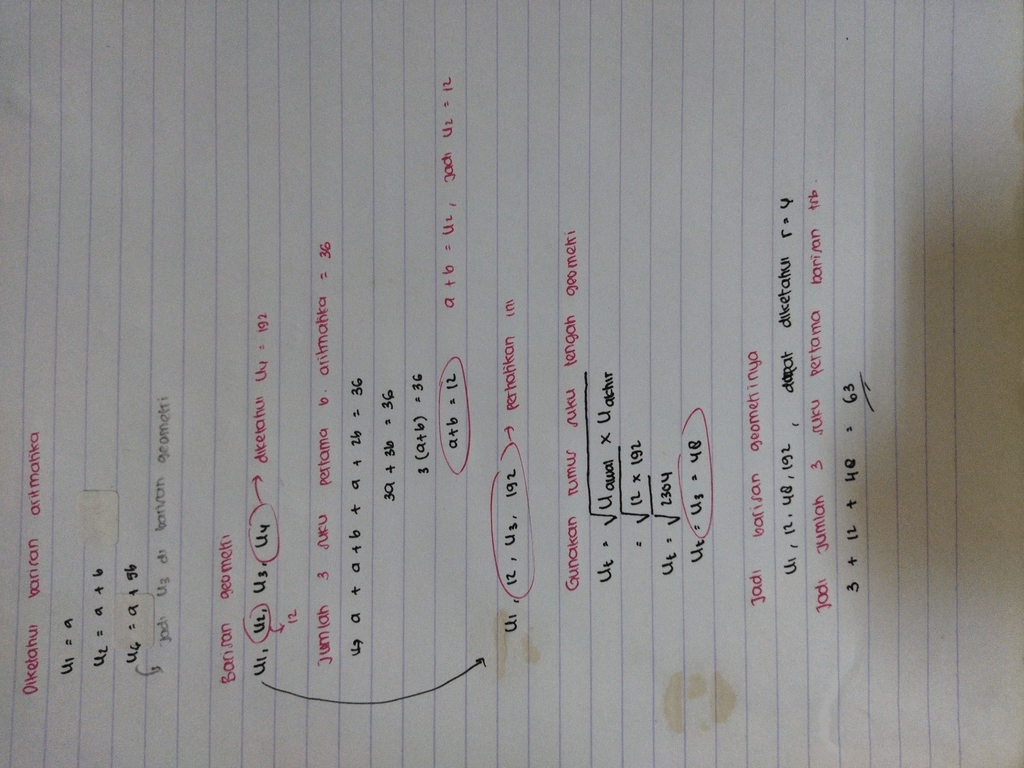 Diketahui barisan aritmatika
U1 = a
U2 = a + b
U6 = a + 5b
↳ Jadi U3 di barisan geometri
Barisan geometri
U1, U2, U3, U4 → diketahui U4 = 192
12
Jumlah 3 suku pertama b. aritmatika = 36
↳ a + a + b + a + 2b = 36
3a + 3b = 36
3 (a+b) = 36
a+b = 12 a + b = U2, Jadi U2 = 12
U1, 12, U3, 192 → perhatikan ini
Gunakan rumus suku tengah geometri
Ut = √Uawal × Uakhir
= √12 × 192
Ut = √2304
Ut = U3 = 48
Jadi barisan geometrinya
U1, 12, 48, 192, dapat diketahui r = 4
Jadi jumlah 3 suku pertama barisan tsb.
3 + 12 + 48 = 63